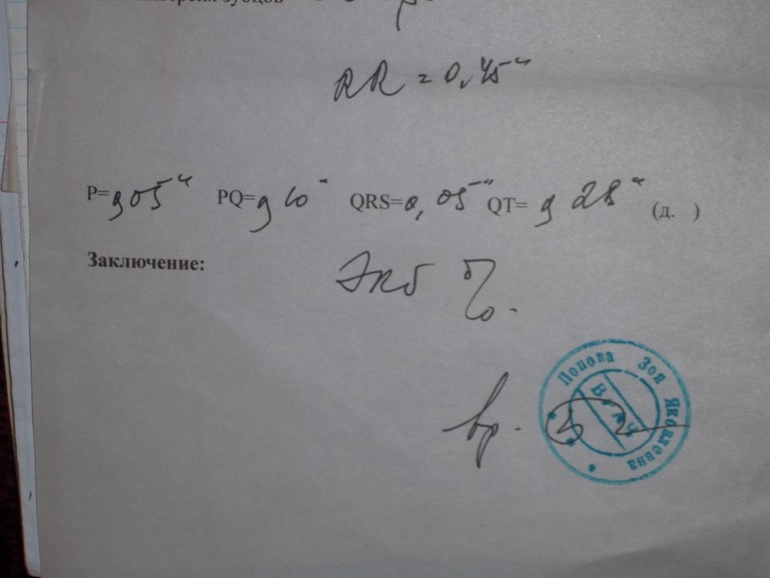 зубцов
RR = 0,45"
P= 0,05" PQ= 0,10" QRS=0,05" QT= 0,28" (д. )
Заключение:
вр.
Попова Зоя Яковлевна
ВРАЧ